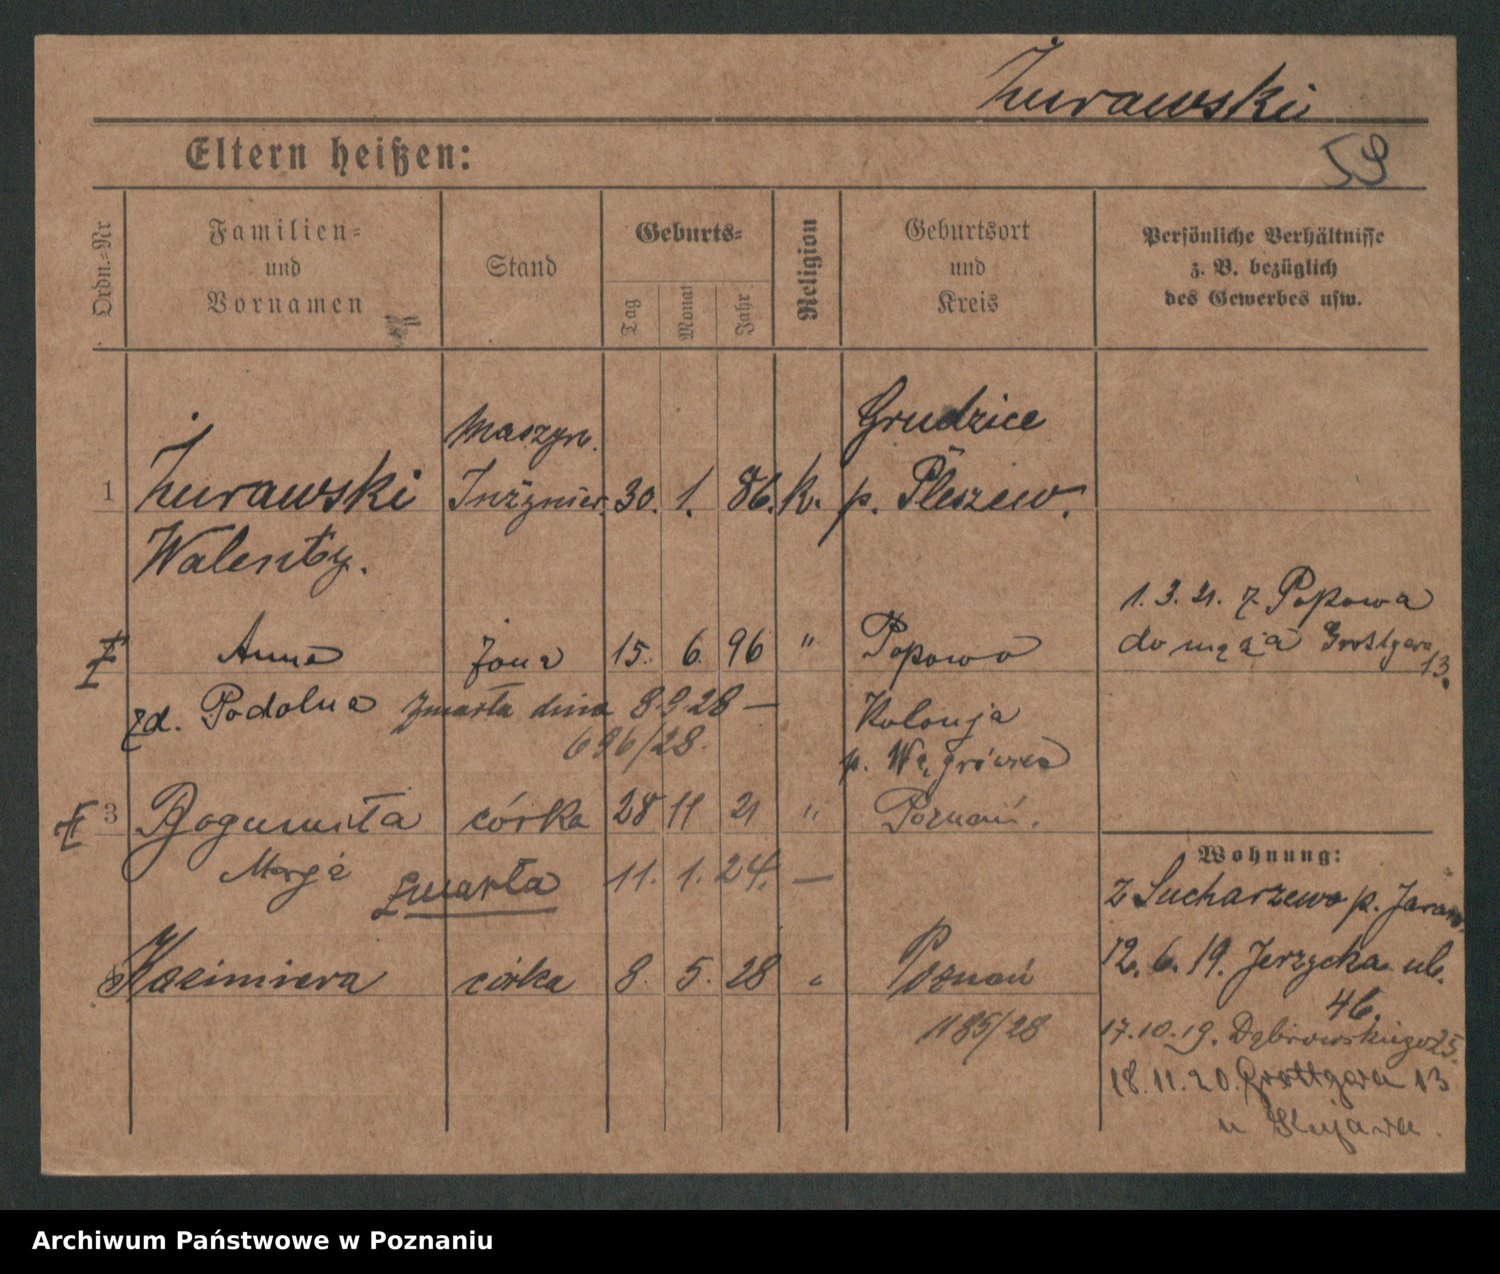 Żurawski
59
Eltern heißen:
Ordn.=Nr
Familien=
und
Vornamen
Stand
Geburts=
Tag
Monat
Jahr
Religion
Geburtsort
und
Kreis
Persönliche Verhältnisse
z. B. bezüglich
des Gewerbes usw.
Maszyn. Grudzice
1 Żurawski Inżynier. 30. 1. 86. k. p. Pleszew.
Walenty.
1. 3. 21. z Popowa
Anna żona 15. 6. 96 " Popowo do męża Grottgera
13.
zd. Podolna zmarła dnia 8 9 28 — Kolonja
696/28. p. Wągrówiec
3 Bogumiła córka 28 11 21 " Poznań.
Marja zmarła 11. 1. 24. —
Wohnung:
z Sucharzewo p. Jaran
Kazimiera córka 8. 5. 28 " Poznań
12. 6. 19. Jerzycka ul.
46.
1185/28
17. 10. 19. Dąbrowskiego 25.
18. 11. 20. Grottgera 13
u